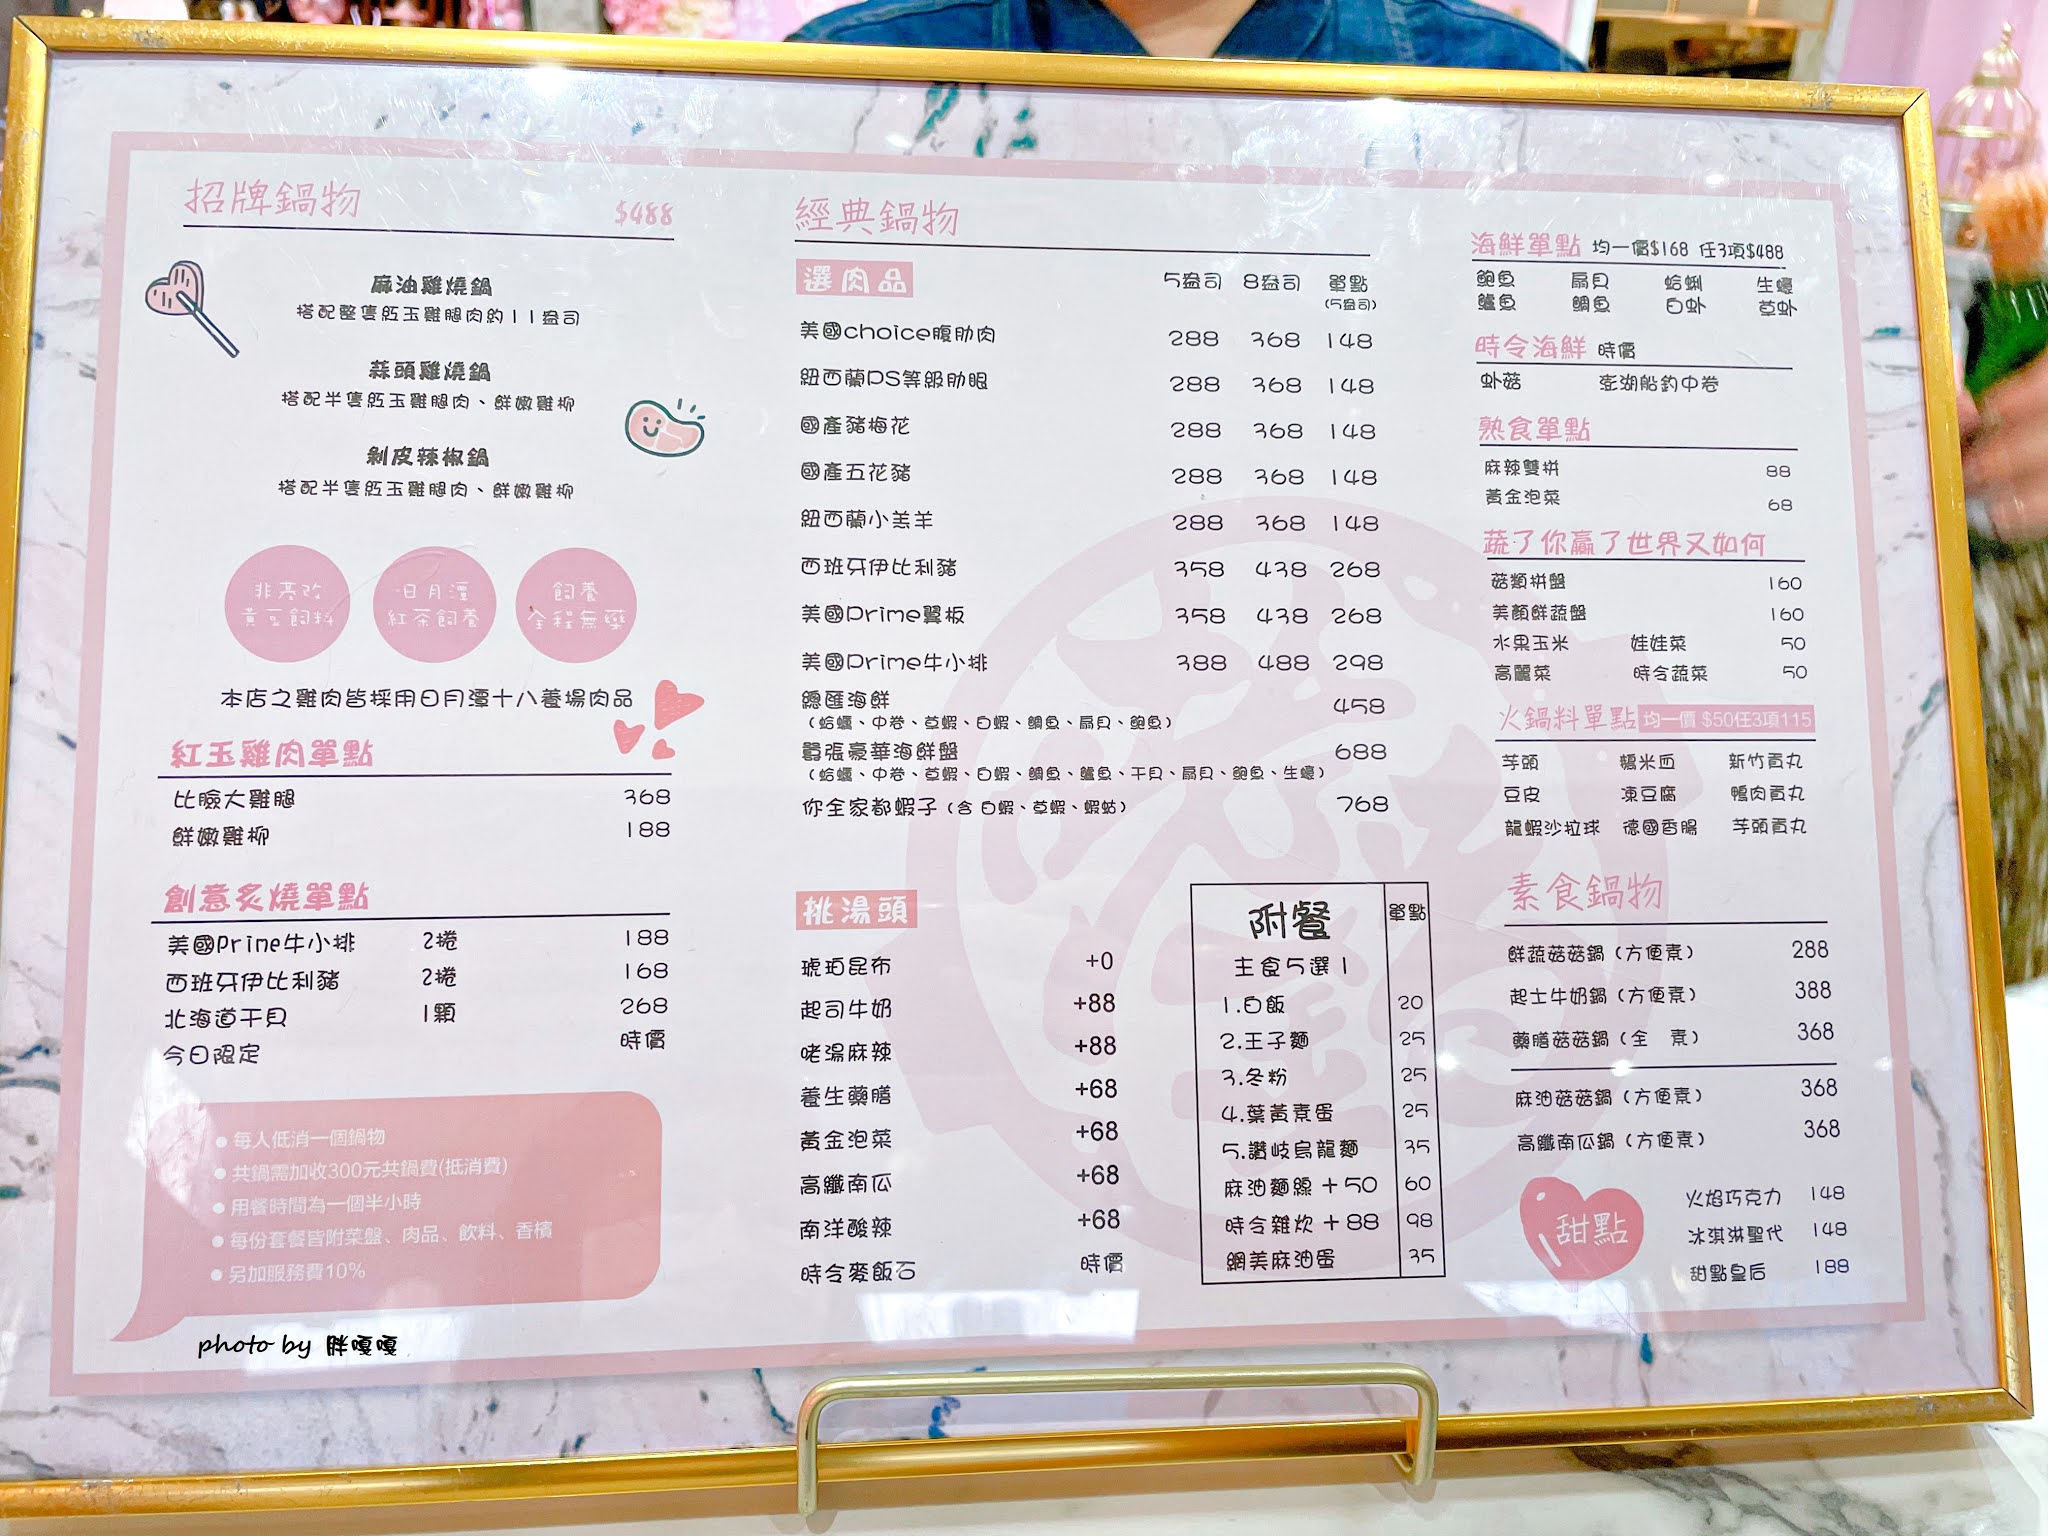 招牌鍋物 $488
麻油雞燒鍋
搭配整隻紅玉雞腿肉約11盎司
蒜頭雞燒鍋
搭配半隻紅玉雞腿肉、鮮嫩雞柳
剝皮辣椒鍋
搭配半隻紅玉雞腿肉、鮮嫩雞柳
非基改
黃豆飼料
日月潭
紅茶飼養
飼養
全程無藥
本店之雞肉皆採用日月潭十八養場肉品
紅玉雞肉單點
比臉大雞腿 368
鮮嫩雞柳 188
創意炙燒單點
美國Prime牛小排 2捲 188
西班牙伊比利豬 2捲 168
北海道干貝 1顆 268
今日限定 時價
●每人低消一個鍋物
●共鍋需加收300元共鍋費(抵消費)
●用餐時間為一個半小時
●每份套餐皆附菜盤、肉品、飲料、香檳
●另加服務費10%
photo by 胖嘎嘎
經典鍋物
選肉品 5盎司 8盎司 單點
(5盎司)
美國choice腹肋肉 288 368 148
紐西蘭PS等級肋眼 288 368 148
國產豬梅花 288 368 148
國產五花豬 288 368 148
紐西蘭小羔羊 288 368 148
西班牙伊比利豬 358 438 268
美國Prime翼板 358 438 268
美國Prime牛小排 388 488 298
總匯海鮮 458
(蛤蠣、中卷、草蝦、白蝦、鯛魚、扇貝、鮑魚)
囂張豪華海鮮盤 688
(蛤蠣、中卷、草蝦、白蝦、鯛魚、鱸魚、干貝、扇貝、鮑魚、生蠔)
你全家都蝦子(含 白蝦、草蝦、蝦蛄) 768
挑湯頭
琥珀昆布 +0
起司牛奶 +88
咾湯麻辣 +88
養生藥膳 +68
黃金泡菜 +68
高纖南瓜 +68
南洋酸辣 +68
時令麥飯石 時價
附餐 單點
主食5選1
1.白飯 20
2.王子麵 25
3.冬粉 25
4.葉黃素蛋 25
5.讚岐烏龍麵 35
麻油麵線+50 60
時令雜炊+88 98
網美麻油蛋 35
海鮮單點 均一價$168 任3項$488
鮑魚 扇貝 蛤蜊 生蠔
鱸魚 鯛魚 白虾 草虾
時令海鮮 時價
虾菇 澎湖船釣中卷
熟食單點
麻辣雙拼 88
黃金泡菜 68
蔬了你贏了世界又如何
菇類拼盤 160
美顏鮮蔬盤 160
水果玉米 娃娃菜 50
高麗菜 時令蔬菜 50
火鍋料單點 均一價 $50任3項115
芋頭 糯米血 新竹貢丸
豆皮 凍豆腐 鴨肉貢丸
龍蝦沙拉球 德國香腸 芋頭貢丸
素食鍋物
鮮蔬菇菇鍋(方便素) 288
起士牛奶鍋(方便素) 388
藥膳菇菇鍋(全 素) 368
麻油菇菇鍋(方便素) 368
高纖南瓜鍋(方便素) 368
甜點
火焰巧克力 148
冰淇淋聖代 148
甜點皇后 188